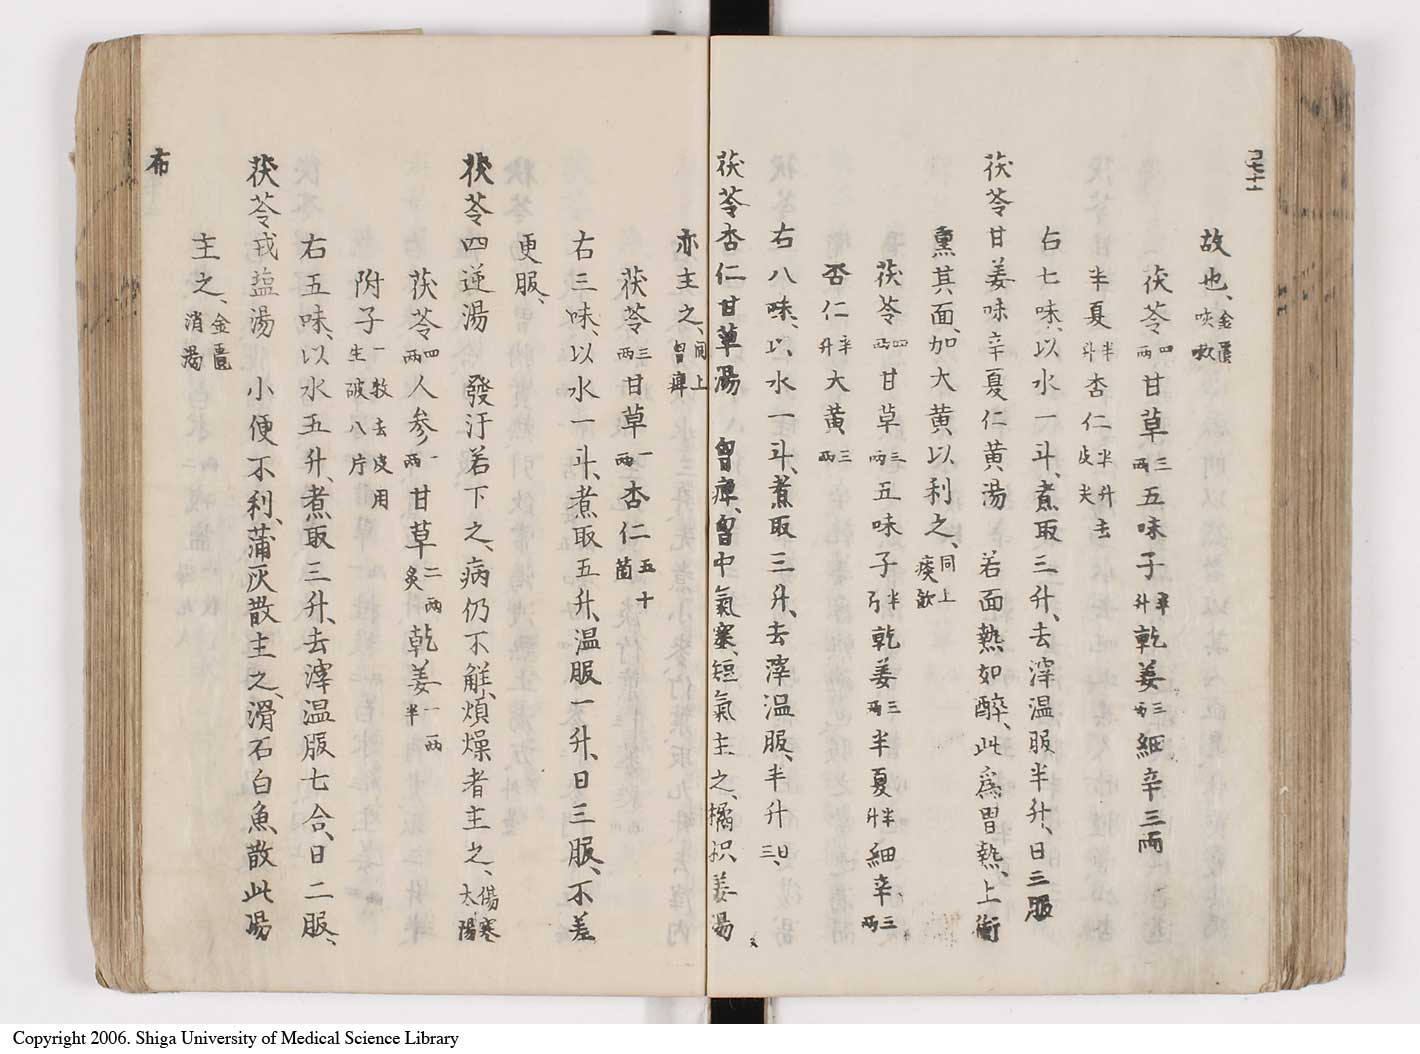 故也、金匱咳嗽
茯苓四兩甘草三兩五味子半升乾姜三兩細辛三兩
半夏半升杏仁半升去皮尖
右七味、以水一斗、煮取三升、去滓温服半升、日三服
茯苓甘姜味辛夏仁黄湯　若面熱如醉、此爲胃熱、上衝
熏其面、加大黄以利之、同上痰飲
茯苓四兩甘草三兩五味子半升乾姜三兩半夏半升細辛三兩
杏仁半升大黄三兩
右八味、以水一斗、煮取三升、去滓温服、半升日三、
茯苓杏仁甘草湯　胷痺、胷中氣塞、短氣主之、橘枳姜湯
亦主之、同上胷痺
茯苓三兩甘草一兩杏仁五十箇
右三味、以水一斗、煮取五升、温服一升、日三服、不差
更服、
茯苓四逆湯　發汗若下之、病仍不解、煩燥者主之、傷寒太陽
茯苓四兩人参一兩甘草二兩炙乾姜一兩半
附子一枚去皮用生破八片
右五味、以水五升、煮取三升、去滓温服七合、日二服、
茯苓戎塩湯　小便不利、蒲灰散主之、滑石白魚散此湯
主之、金匱消渇
布
Copyright 2006. Shiga University of Medical Science Library